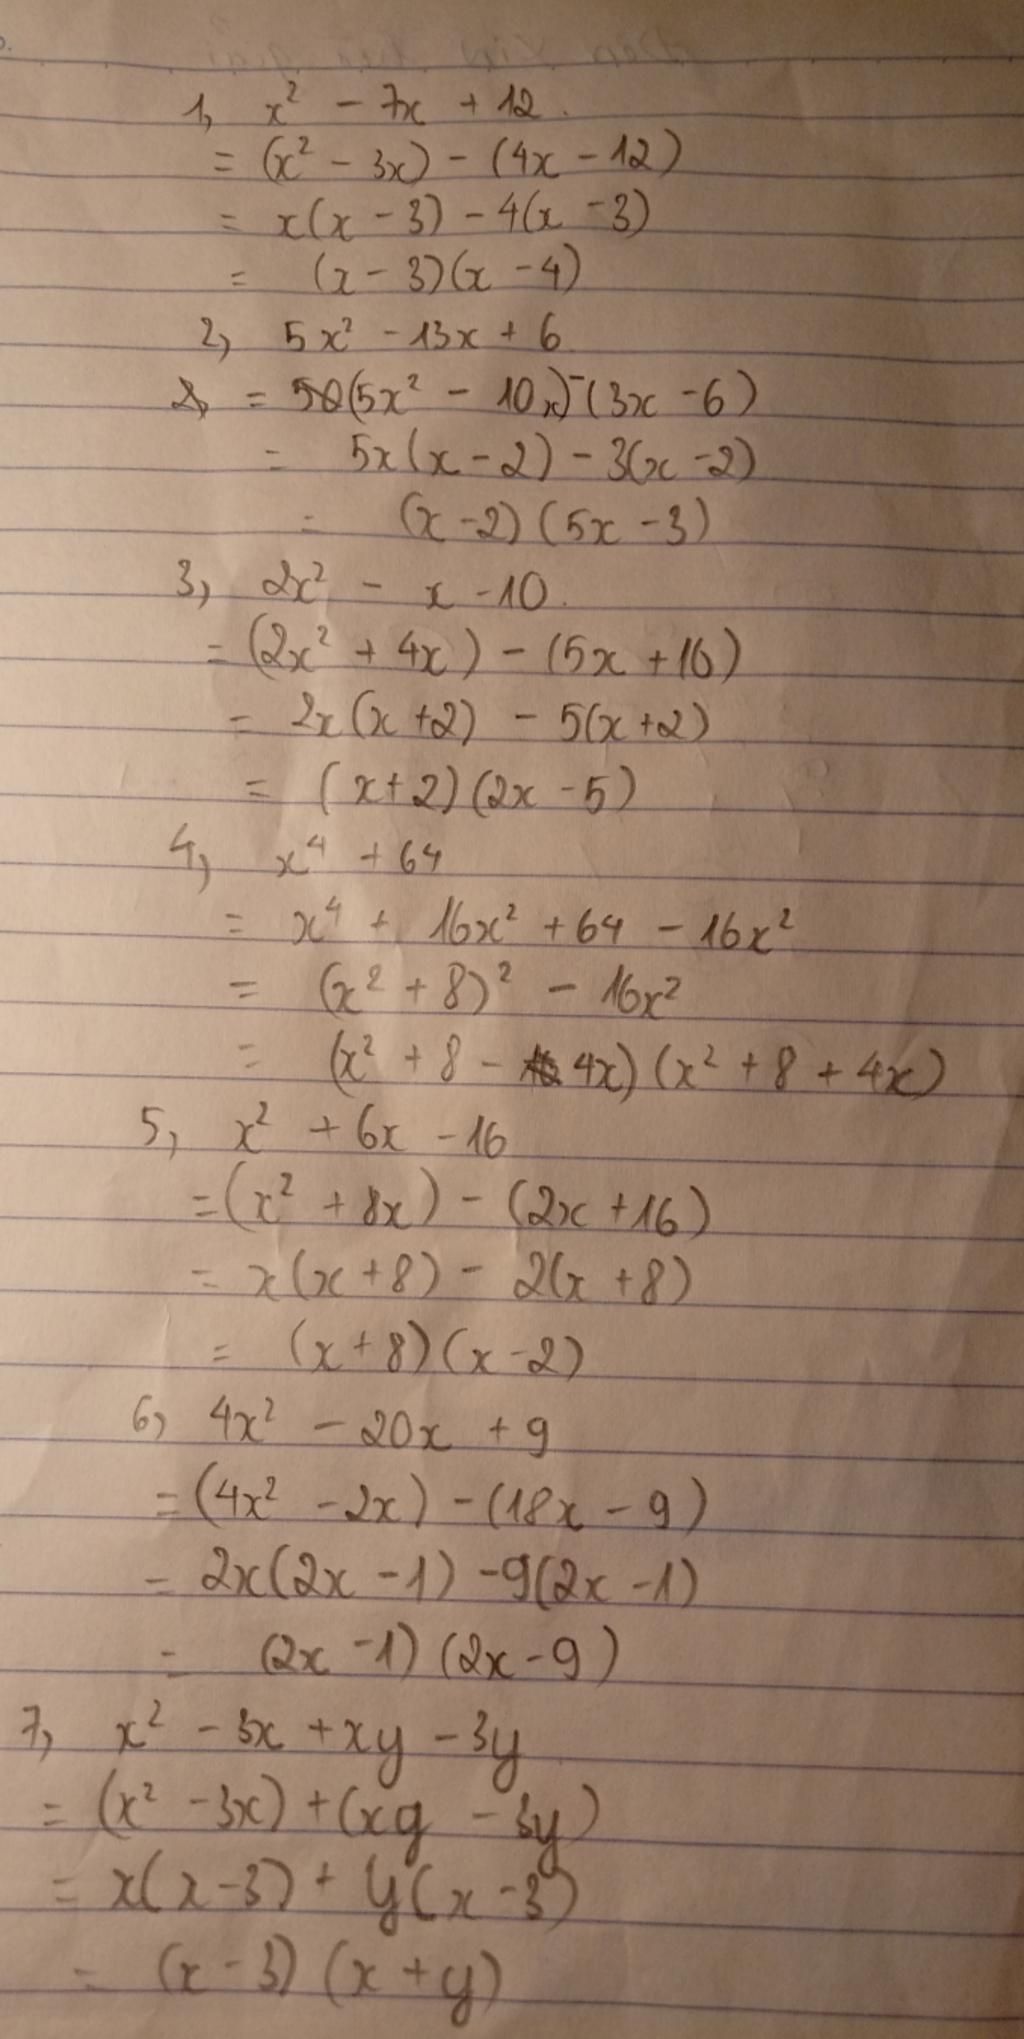 1, x² - 7x + 12.
= (x² - 3x) - (4x - 12)
= x(x - 3) - 4(x - 3)
= (x - 3)(x - 4)
2, 5x² - 13x + 6
= (5x² - 10x) - (3x - 6)
= 5x(x - 2) - 3(x - 2)
= (x - 2)(5x - 3)
3, 2x² - x - 10.
= (2x² + 4x) - (5x + 10)
= 2x(x + 2) - 5(x + 2)
= (x + 2)(2x - 5)
4, x⁴ + 64
= x⁴ + 16x² + 64 - 16x²
= (x² + 8)² - 16x²
= (x² + 8 - 4x)(x² + 8 + 4x)
5, x² + 6x - 16
= (x² + 8x) - (2x + 16)
= x(x + 8) - 2(x + 8)
= (x + 8)(x - 2)
6, 4x² - 20x + 9
= (4x² - 2x) - (18x - 9)
= 2x(2x - 1) - 9(2x - 1)
= (2x - 1)(2x - 9)
7, x² - 3x + xy - 3y
= (x² - 3x) + (xy - 3y)
= x(x - 3) + y(x - 3)
= (x - 3)(x + y)